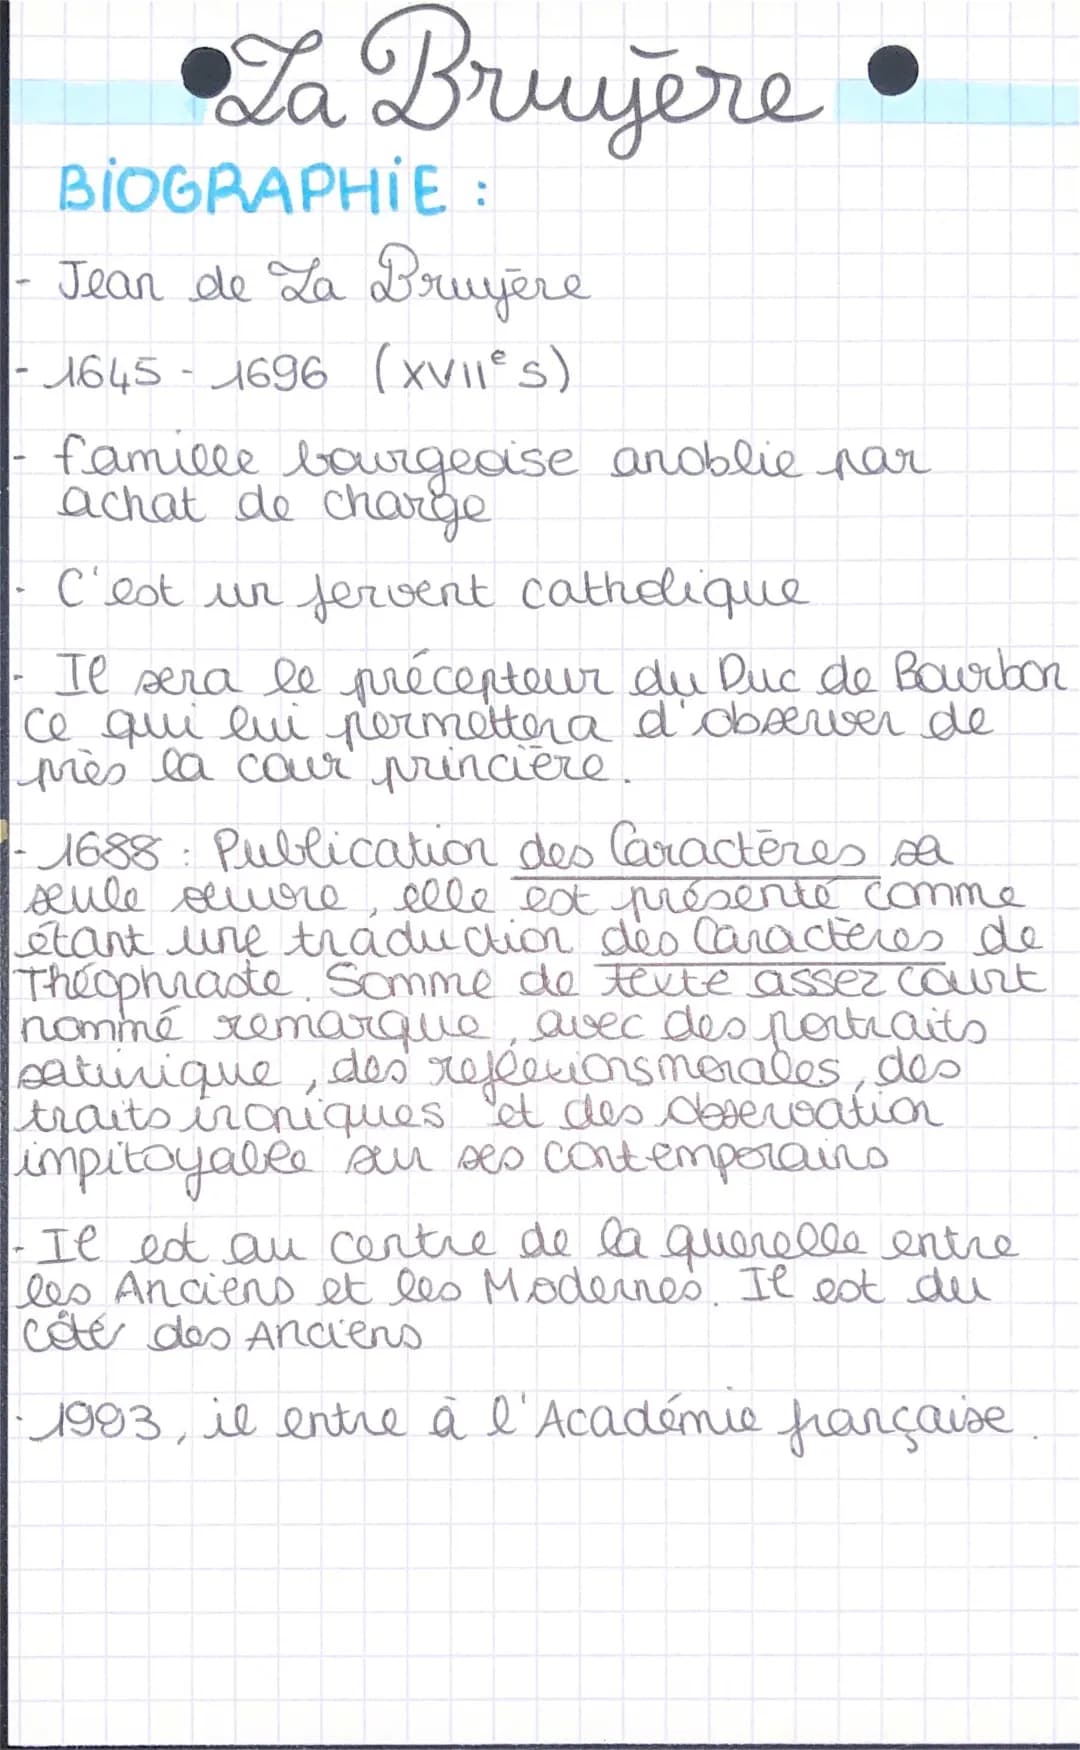 La Bruyère
BIOGRAPHIE :
- Jean de La Bruyère
- 1645 - 1696 (XVIIe s)
- famille bourgeoise anoblie par
achat de charge
- C'est un fervent catholique
- Il sera le précepteur du Duc de Bourbon
ce qui lui permettera d'observer de
près la cour princière.
- 1688 : Publication des Caractères sa
seule œuvre, elle est présenté comme
étant une traduction des Caractères de
Théophraste. Somme de texte assez court
nommé remarque, avec des portraits
satirique, des reflexions morales, des
traits ironiques et des observation
impitoyable sur ses contemporains
- Il est au centre de la querelle entre
les Anciens et les Modernes. Il est du
côté des Anciens
- 1993, il entre à l'Académie française.